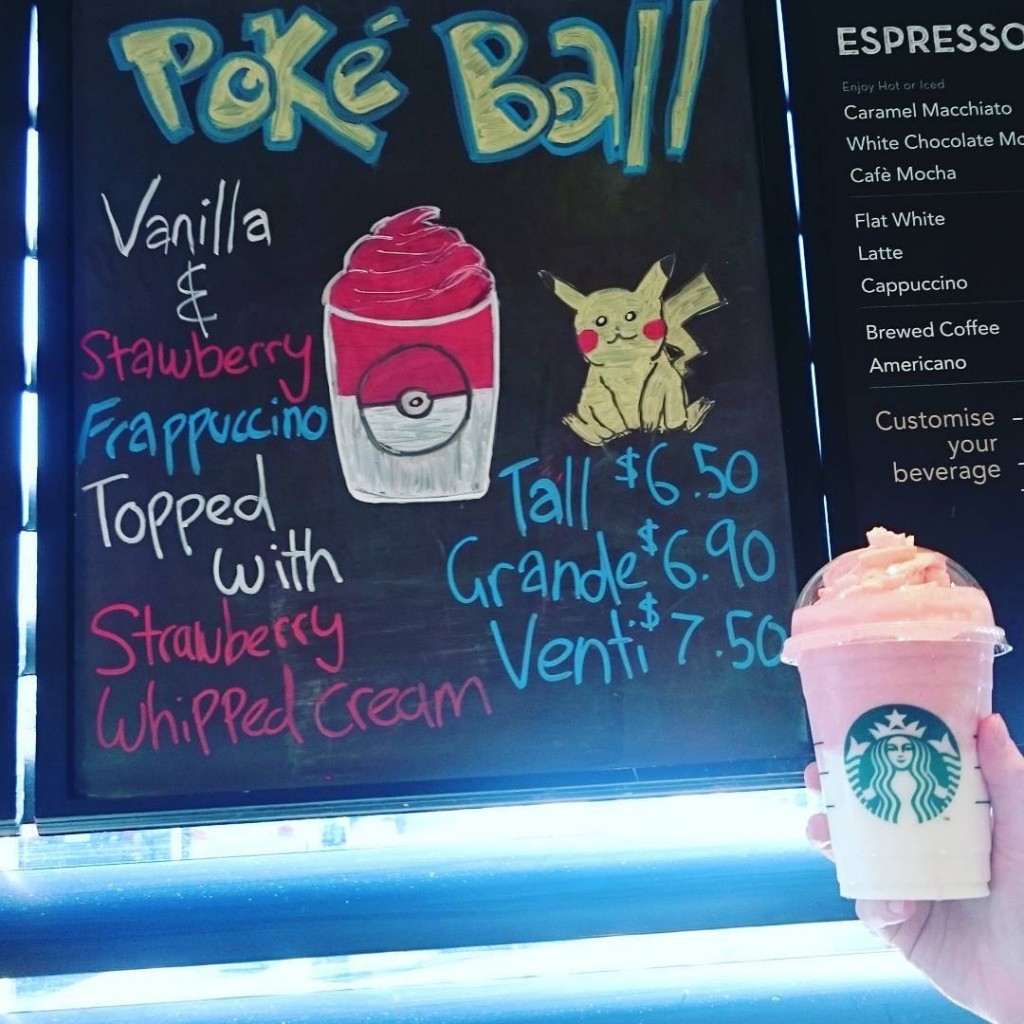 Poké Ball
Vanilla
&
Stawberry
Frappuccino
Topped
with
Strawberry
Whipped cream
Tall $6.50
Grande $6.90
Venti $7.50
ESPRESSO
Enjoy Hot or Iced
Caramel Macchiato
White Chocolate Mo
Cafè Mocha
Flat White
Latte
Cappuccino
Brewed Coffee
Americano
Customise
your
beverage
TM